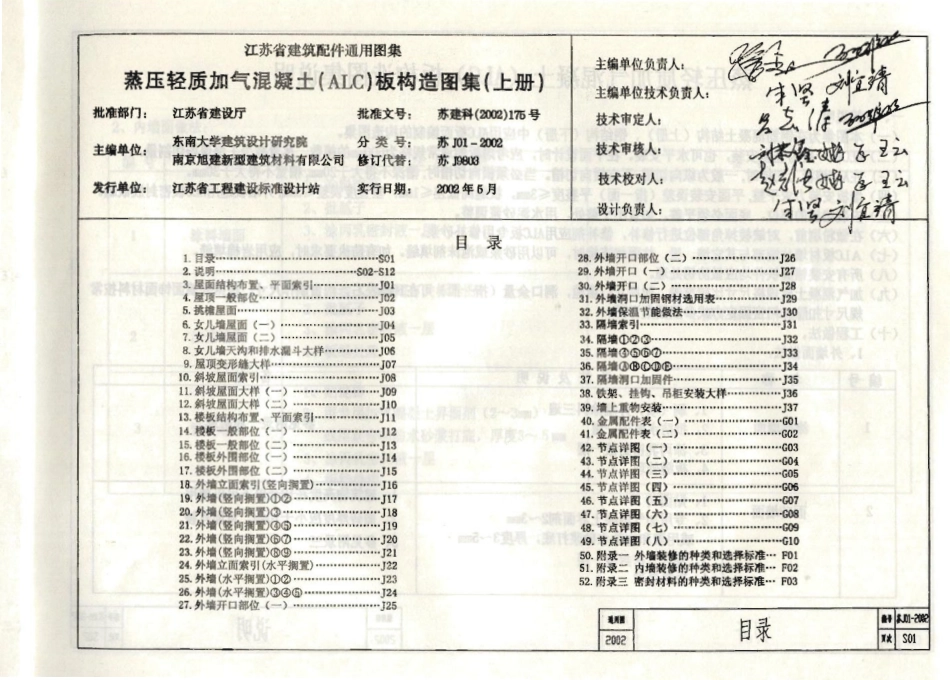 江苏省建筑配件通用图集
蒸压轻质加气混凝土(ALC)板构造图集(上册)
批准部门： 江苏省建设厅 批准文号： 苏建科(2002)175号
主编单位： 东南大学建筑设计研究院 分类号： 苏J01-2002
南京旭建新型建筑材料有限公司 修订代替： 苏J9803
发行单位： 江苏省工程建设标准设计站 实行日期： 2002年5月
主编单位负责人：
主编单位技术负责人：
技术审定人：
技术审核人：
技术校对人：
设计负责人：
目录
1.目录 S01
2.说明 S02-S12
3.屋面结构布置、平面索引 J01
4.屋顶一般部位 J02
5.挑檐屋面 J03
6.女儿墙屋面（一） J04
7.女儿墙屋面（二） J05
8.女儿墙天沟和排水漏斗大样 J06
9.屋顶变形缝大样 J07
10.斜坡屋面索引 J08
11.斜坡屋面大样（一） J09
12.斜坡屋面大样（二） J10
13.楼板结构布置、平面索引 J11
14.楼板一般部位（一） J12
15.楼板一般部位（二） J13
16.楼板外围部位（一） J14
17.楼板外围部位（二） J15
18.外墙立面索引(竖向搁置) J16
19.外墙(竖向搁置)①② J17
20.外墙(竖向搁置)③ J18
21.外墙(竖向搁置)④⑤ J19
22.外墙(竖向搁置)⑥⑦ J20
23.外墙(竖向搁置)⑧⑨ J21
24.外墙立面索引(水平搁置) J22
25.外墙(水平搁置)①② J23
26.外墙(水平搁置)③④⑤ J24
27.外墙开口部位（一） J25
28.外墙开口部位（二） J26
29.外墙开口（一） J27
30.外墙开口（二） J28
31.外墙洞口加固钢材选用表 J29
32.外墙保温节能做法 J30
33.隔墙索引 J31
34.隔墙①②③ J32
35.隔墙④⑤⑥⑦ J33
36.隔墙ⒶⒷⒸⒹⒺ J34
37.隔墙洞口加固件 J35
38.铁架、挂钩、吊柜安装大样 J36
39.墙上重物安装 J37
40.金属配件表（一） G01
41.金属配件表（二） G02
42.节点详图（一） G03
43.节点详图（二） G04
44.节点详图（三） G05
45.节点详图（四） G06
46.节点详图（五） G07
47.节点详图（六） G08
48.节点详图（七） G09
49.节点详图（八） G10
50.附录一 外墙装修的种类和选择标准 F01
51.附录二 内墙装修的种类和选择标准 F02
52.附录三 密封材料的种类和选择标准 F03
通用图 目录 编号 苏J01-2002
2002 页次 S01